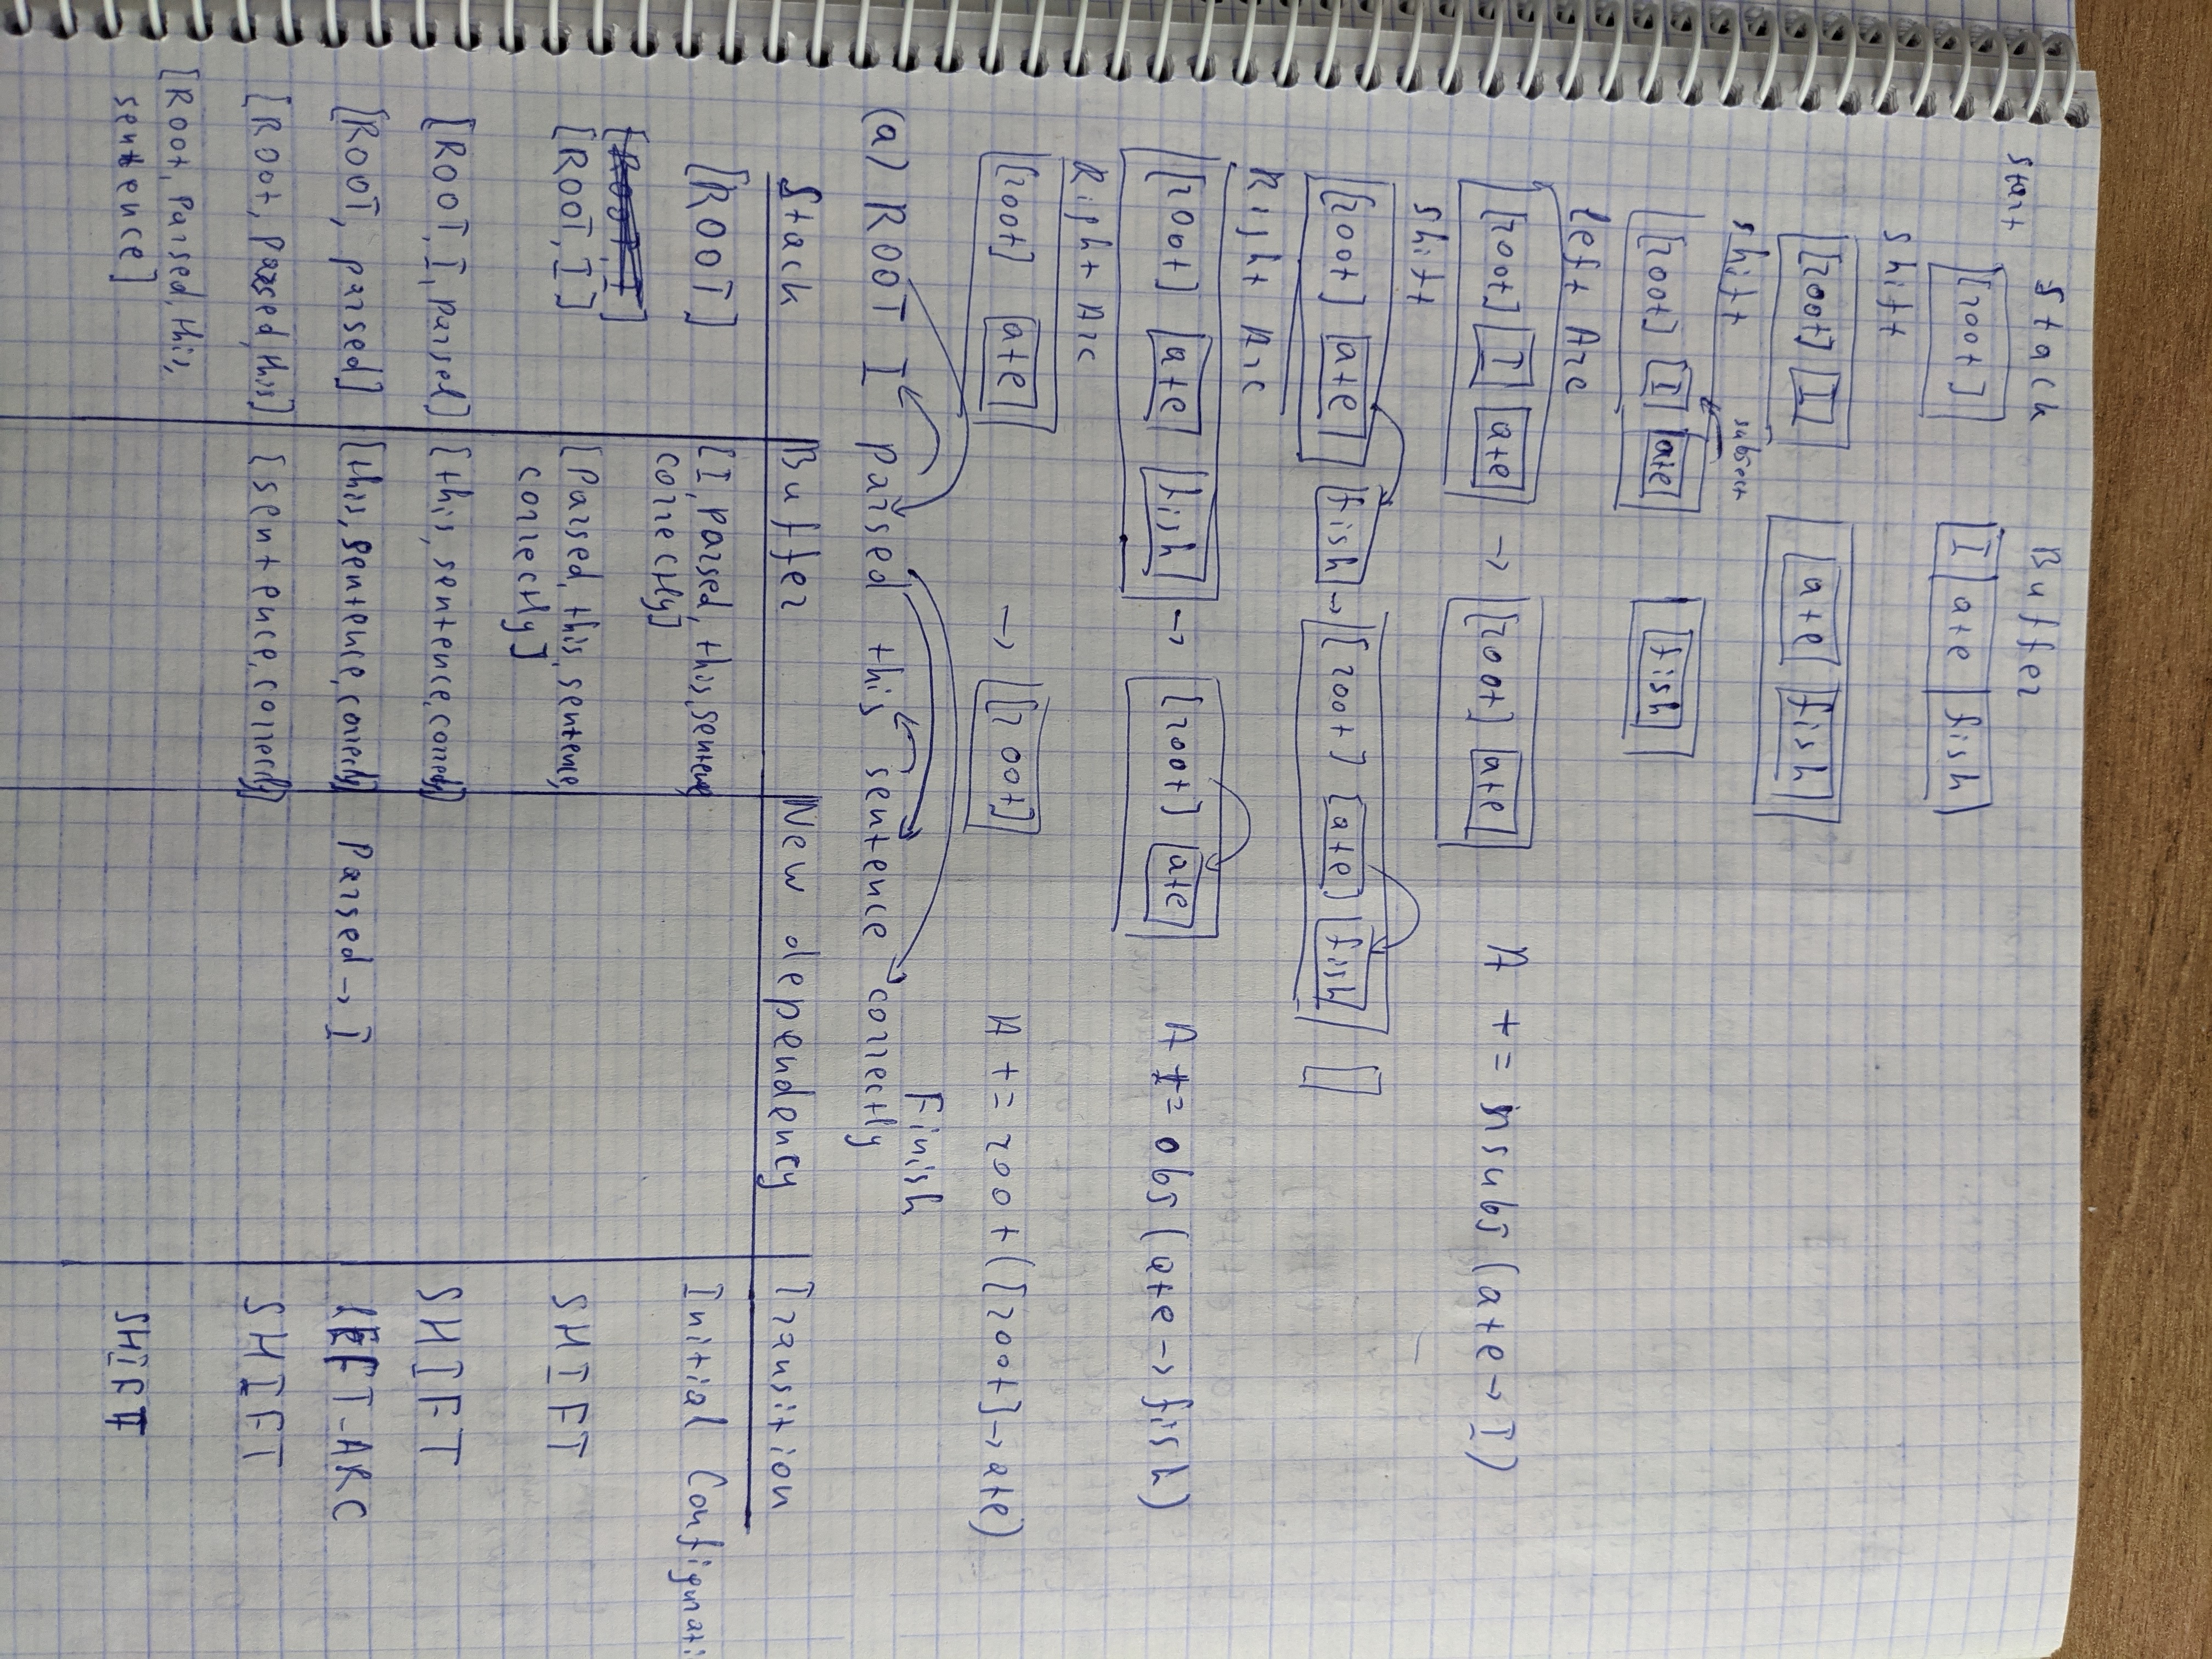 Stack Buffer
start
[root] I ate fish
shift
[root] I ate fish
shift subject
[root] I ate fish
Left Arc
[root] I ate → [root] ate A += nsubj (ate → I)
shift
[root] ate fish → [root] ate fish []
Right Arc
[root] ate fish → [root] ate A += obj (ate → fish)
Right Arc
[root] ate → [root] A += root ([root] → ate)
Finish
(a) ROOT I parsed this sentence correctly
Stack Buffer New dependency Transition
[ROOT] [I, parsed, this, sentence, Initial Configurati
correctly]
[ROOT, I]
[ROOT, I] [Parsed, this, sentence, SHIFT
correctly]
[ROOT, I, parsed] [this, sentence, correctly] SHIFT
[ROOT, parsed] [this, sentence, correctly] Parsed → I LEFT-ARC
[ROOT, Parsed, this] [sentence, correctly] SHIFT
[Root, Parsed, this,
sentence] SHIFT